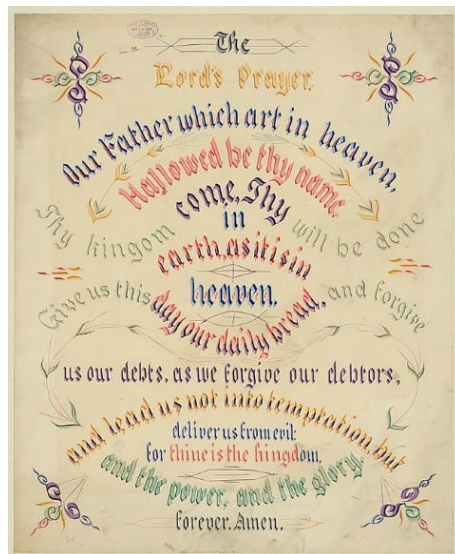 The
Lord's Prayer.
Our Father which art in heaven,
Hallowed be thy name.
Thy kingom come, Thy will be done
in
earth, as it is in
heaven.
Give us this day our daily bread, and forgive
us our debts, as we forgive our debtors,
and lead us not into temptation, but
deliver us from evil:
for thine is the kingdom,
and the power, and the glory,
forever. Amen.